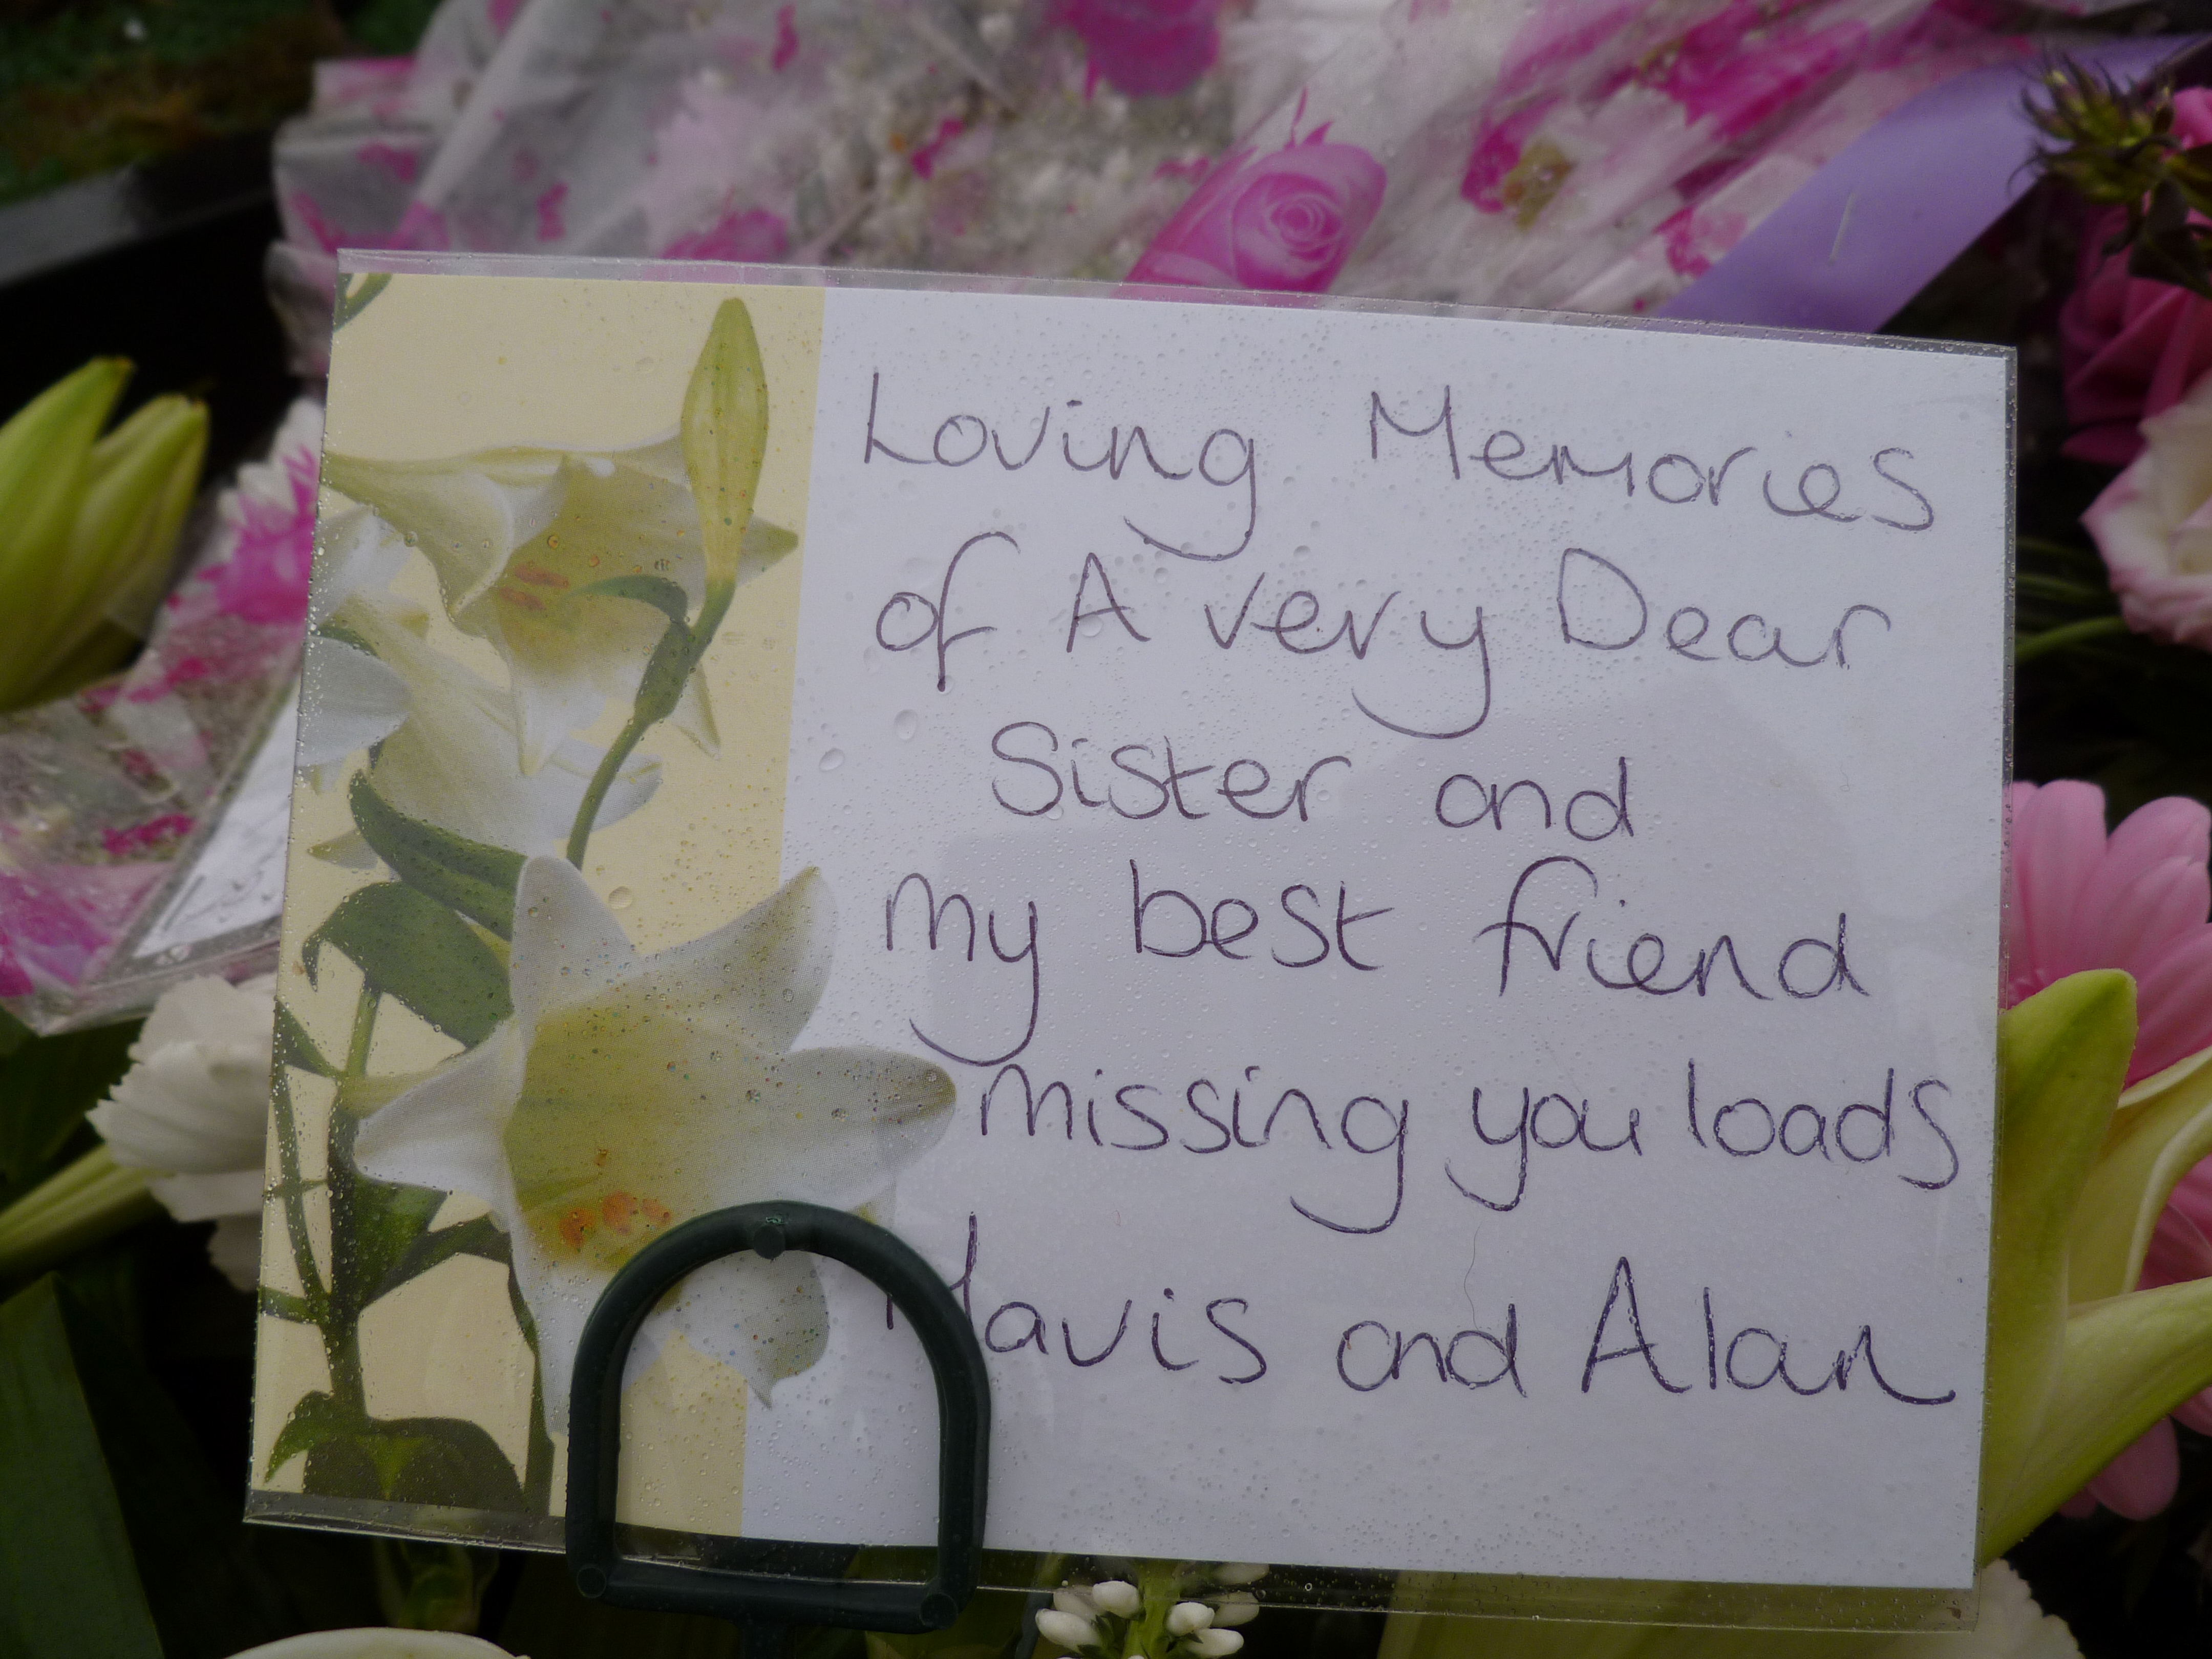 Loving Memories
of A very Dear
Sister and
my best friend
missing you loads
Mavis and Alan